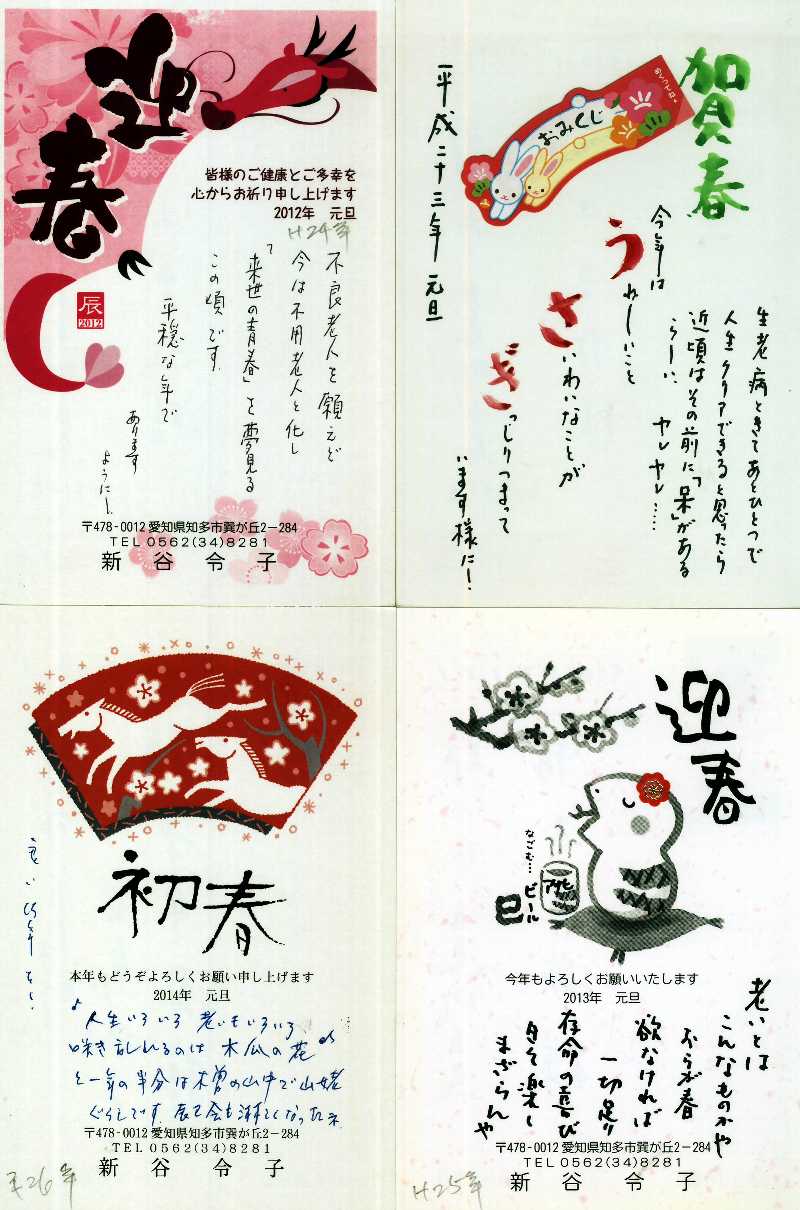 迎春
皆様のご健康とご多幸を
心からお祈り申し上げます
2012年 元旦
H24年
不良老人を願えど
今は不用老人と化し
「来世の青春」を夢見る
この頃です.
平穏な年で
あります
ように!
辰
2012
〒478-0012 愛知県知多市巽が丘2-284
TEL 0562(34)8281
新谷令子
賀春
めくってね。
おみくじ
平成二十三年 元旦
今年は
うれしいこと
さいわいなことが
ぎっしりつまって
います様に!
生老病ときてあとひとつで
人生クリアできると思ったら
近頃はその前に「呆」がある
らしい ヤレヤレ……
初春
本年もどうぞよろしくお願い申し上げます
2014年 元旦
人生いろいろ 老いもいろいろ
咲き乱れるのは 木瓜の花
と一年の半分は木曽の山中で山姥
ぐらしです。
〒478-0012 愛知県知多市巽が丘2-284
TEL 0562(34)8281
新谷令子
平26年
迎春
なごむ…
ビール
アサヒ
巳
今年もよろしくお願いいたします
2013年 元旦
老いとは
こんなものかや
おらが春
欲なければ
一切足り
存命の喜び
まざらんや
〒478-0012 愛知県知多市巽が丘2-284
TEL 0562(34)8281
新谷令子
H25年